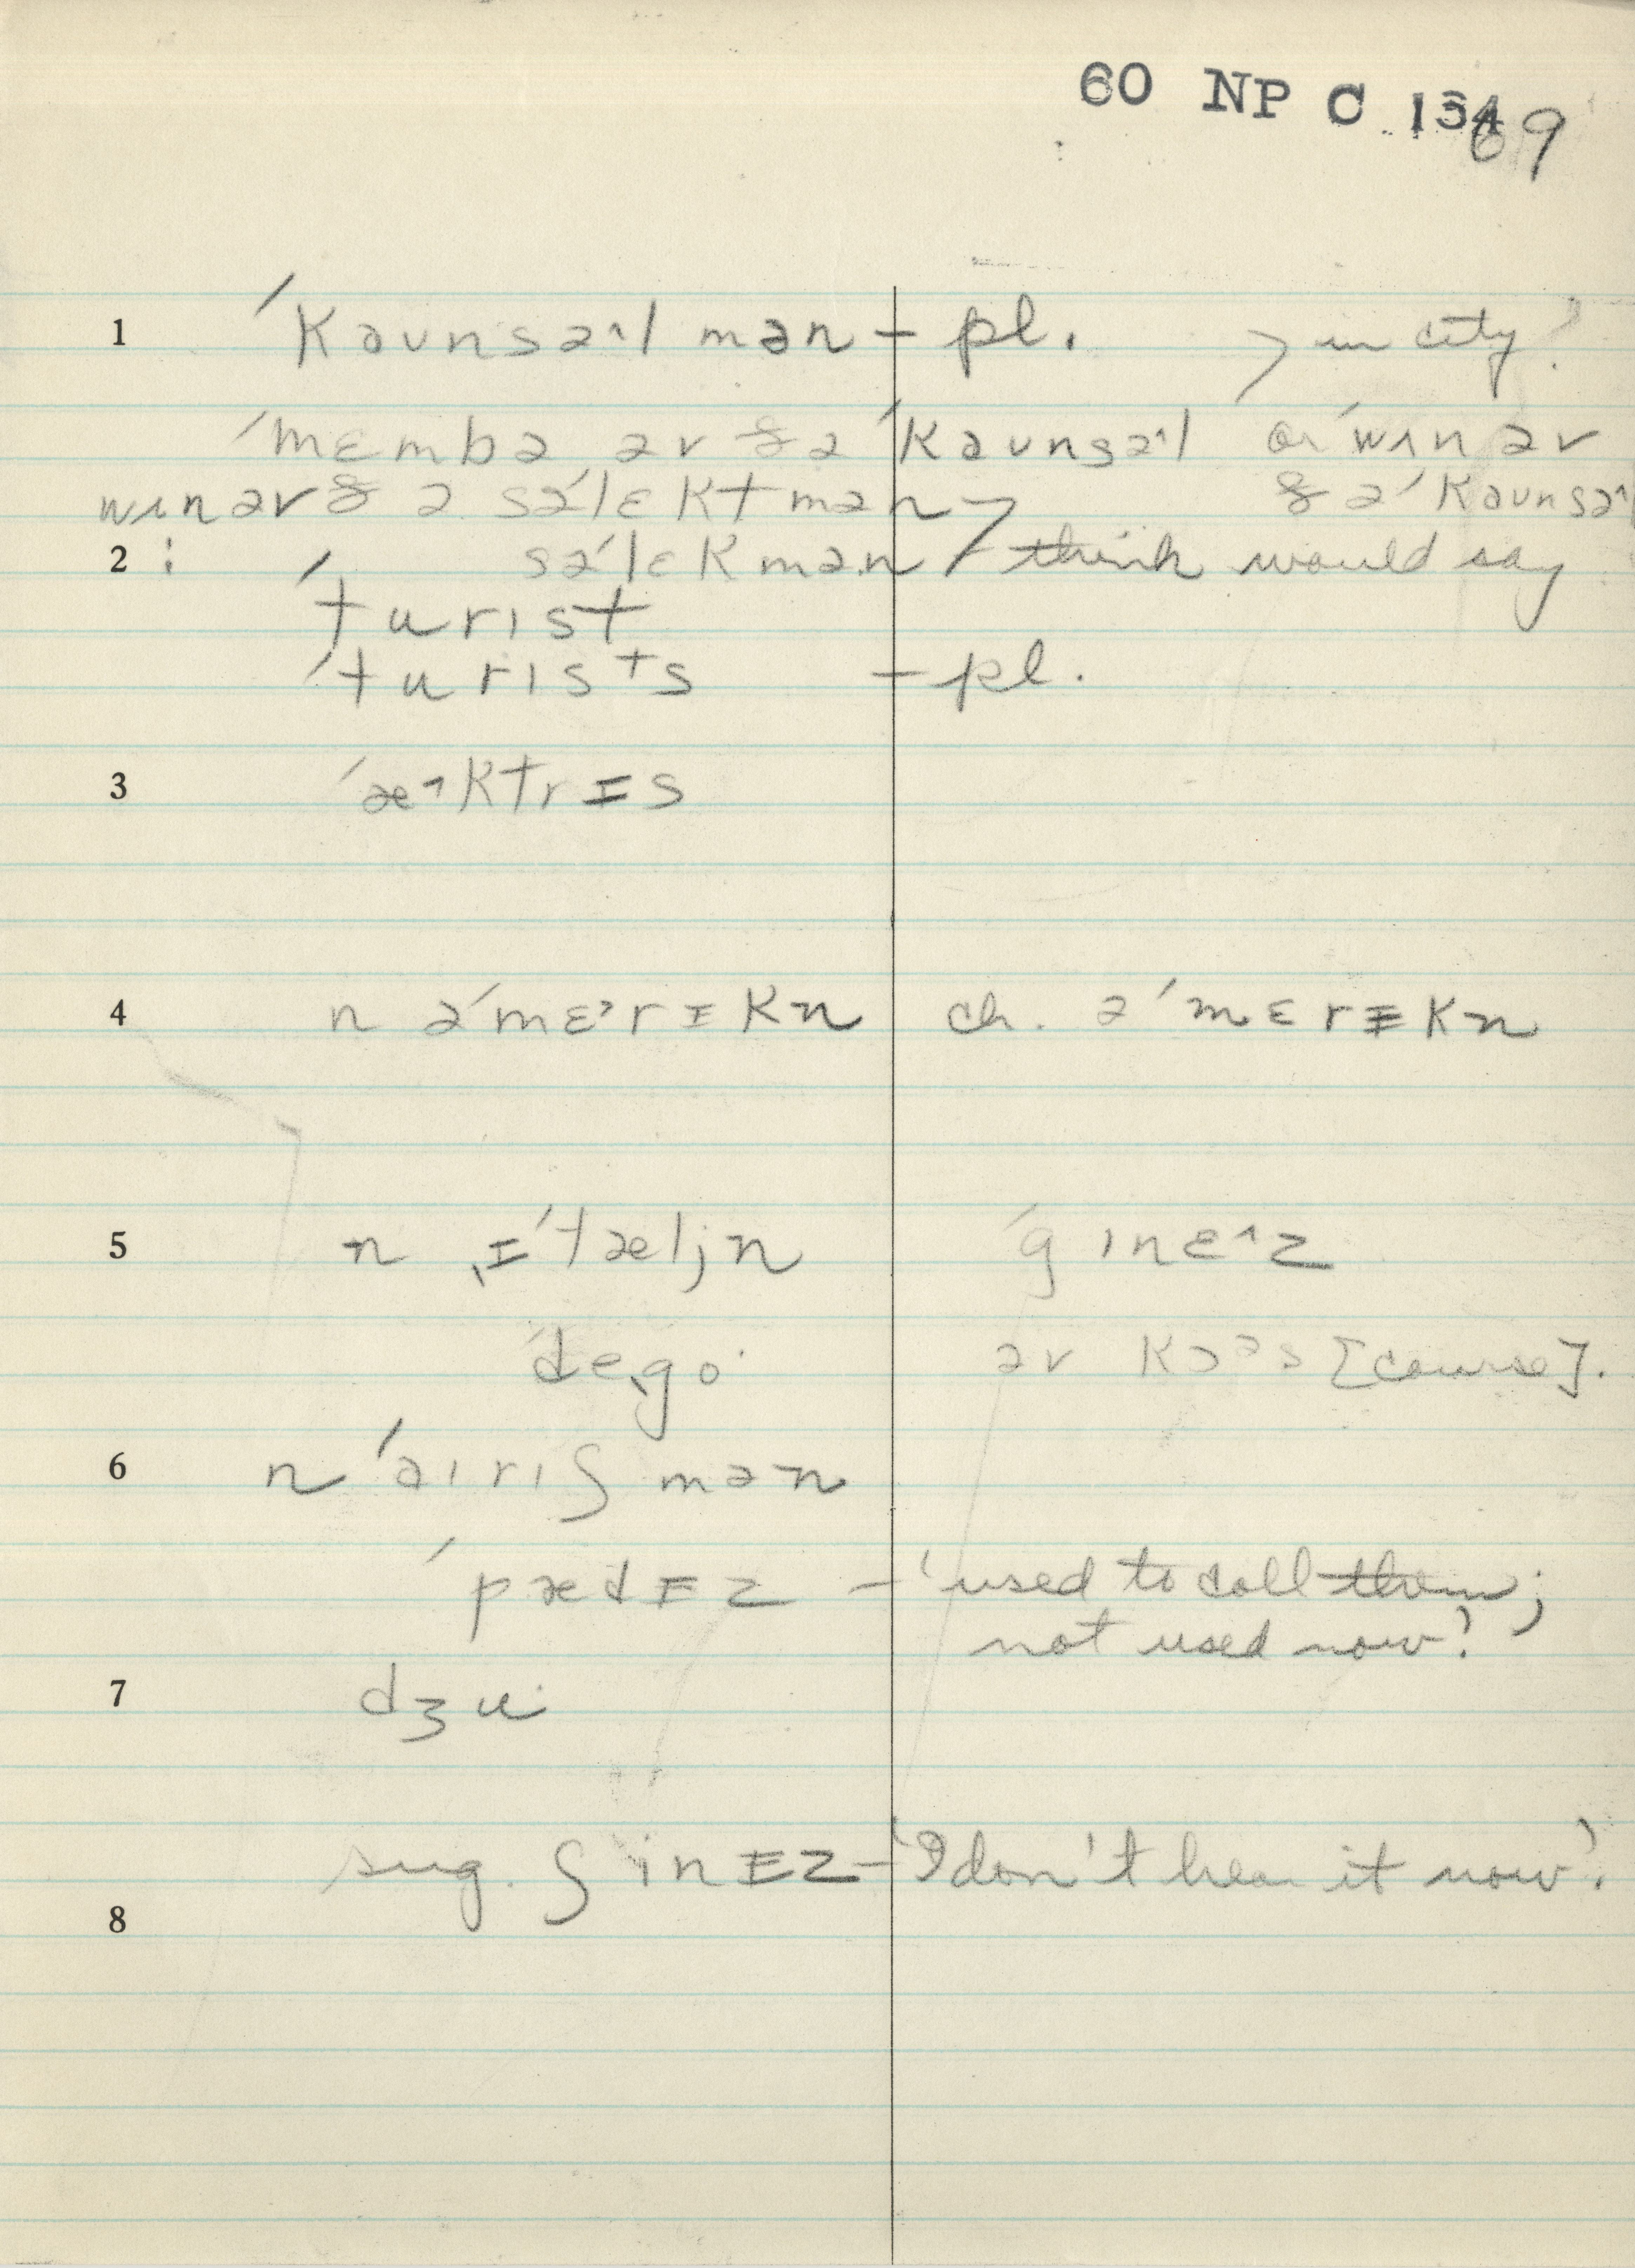 60 NP C 134 69
1 ˈkaʊnsə˄l mən – pl. > in city?
ˈmɛmbə əv ðə ˈkaʊnsə˄l or wʌn əv
wʌn əv ð ə səˈlɛktmən > ðə ˈkaʊnsə˄l
2 : səˈlɛkmən / – think would say
ˈturɪst
ˈturɪsts – pl.
3 ˈæ˄ktrɪs
4 n əˈmɛ˃rɪkn ch. əˈmɛrɪkn
5 n ˌɪˈtæljn ˈgɪnɛ˄z
ˈdeˌgo əv kɔəs [course].
6 n ˈaɪrɪʃ mən
ˈpædɪz – 'used to call them;
not used now?'
7 dʒu
sug. ʃ inɪz – 'I don't hear it now'.
8